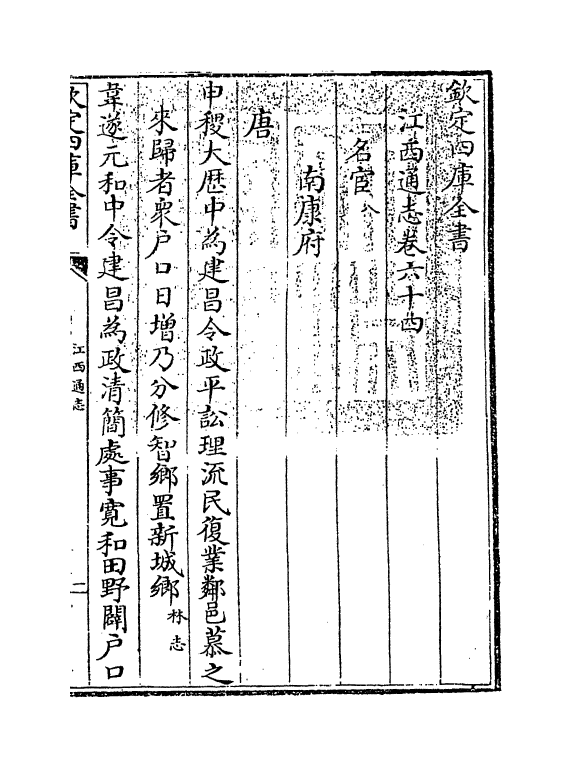 欽定四庫全書
江西通志卷六十四
名宦八
南康府
唐
申稷大歷中為建昌令政平訟理流民復業鄰邑慕之
來歸者衆戶口日增乃分修智鄉置新城鄉林志
韋遂元和中令建昌為政清簡處事寛和田野闢戶口
欽定四庫全書
江西通志